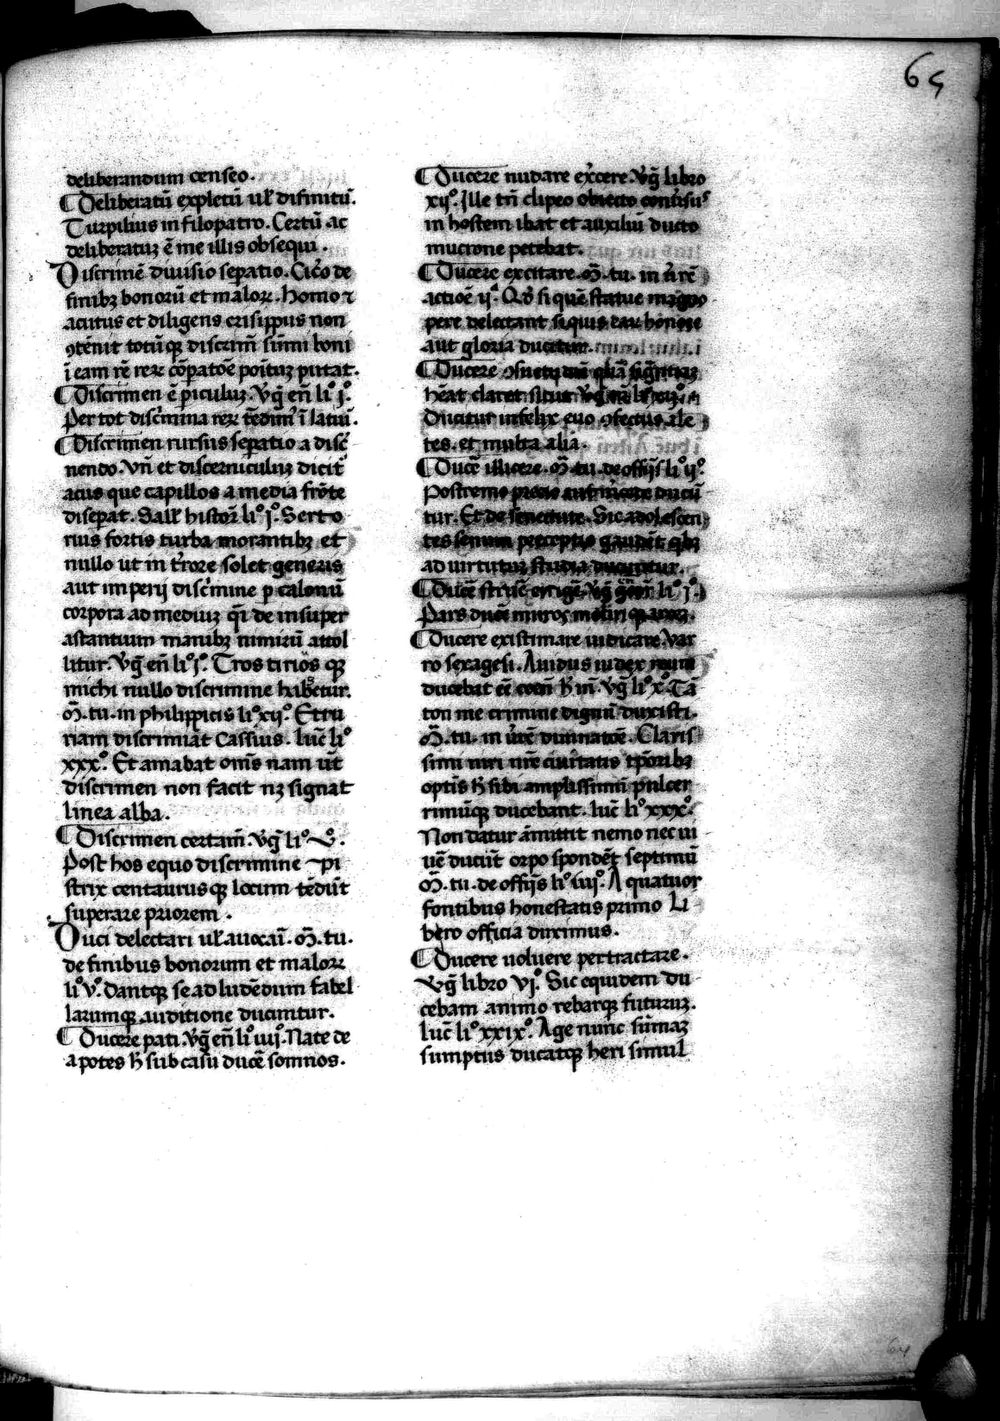 65
deliberandum censeo.
¶ Deliberatū expletū ul̄ difinitū.
Turpilius in filopatro. Certū ac
deliberatuꝫ ē me illis obsequi.
Discrimē diuisio sepatio. Cic̄o de
finibꝫ bonorū et maloꝝ. Homo ⁊
acutus et diligens crisippus non
ꝯtēnit totūqꝫ discrim̄ sūmi boni
ī eam rē reꝝ cōꝑatōe poituꝫ pirtat.
¶ Discrimen ē piculuꝫ. Vḡ en̄ liº jº.
Per tot discʼmina reꝝ tēdimʼ ī latiū.
¶ Discrimen rursus seꝑatio a disc̄
nendo. Vn̄ et discerniculuꝫ dicit᷑
acus que capillos a media frōte
diseꝑat. Sall̄ histoꝝ liº jº. Serto
rius fortis turba morantibꝫ et
nullo ut in t̄rore solet generis
aut imperij discʼmine ꝑ calonū
corpora ad mediuꝫ q̄i de insuper
astantium manibꝫ nimirū attol
litur. Vḡ en̄ liº jº. Tros tirios qꝫ
michi nullo discrimine habetur.
M̄. tu. in philippicis liº xijº. Etru
riam discrimīat Cassius. luc̄ liº
xxxº. Et amabat om̄s nam ut̄
discrimen non facit nꝫ signat
linea alba.
¶ Discrimen certam̄. Vḡ liº vº.
Post hos equo discrimine pi
strix centaurusqꝫ locum tēdūt
superare priorem.
Duci delectari ul̄ auocaī. M̄. tu.
de finibus bonorum et maloꝝ
liº vº. dantqꝫ se ad ludēdum fabel
larumqꝫ auditione ducuntur.
¶ Ducere pati. Vḡ en̄ liº iiijº. Nate de
a potes h̄ sub casu ducē somnos.
¶ Ducere nudare ex̄cere. Vḡ libro
xijº. Ille tn̄ clipeo obiecto conūsuˢ
in hostem ibat et auxiliū ducto
mucrone petebat.
¶ Ducere excitare. M̄. tu. in ūrē
actiōe ijª. Qd̓ si quē statue magno
pere delectant siquis eaꝝ honore
aut gloria ducitur.
¶ Ducere
hēat claret situs
Ducitur infelix euo ꝯfectus ale
tes. et multa alia.
¶ Ducē illicere. M̄. tu. de offijs liº ijº.
Postremo precio ducū
tur. Et de senectute. Sic adolescen
tes senum preceptis gaudēt qbꝫ
ad uirtutuꝫ studia ducuntur.
¶ Ducē strūe erigē. Vḡ liº jº.
Pars ducē muros
¶ Ducere existimare iudicare. Var
ro sexagesi. Auidus iudex reum
ducebat eē Vḡ liº xº. Tā
ton me crimine dignū duxisti.
M̄. tu. in Claris
simi uiri nr̄e ciuitatis tꝑoribꝫ
optīs h̄ sibi amplissimū pulcer
rimūqꝫ ducebant. luc̄ liº xxxº.
Non datur āmittit nemo nec ui
uē ducūt orpo spondēt septimū
M̄. tu. de offijs liº iiijº. A quatuor
fontibus honestatis primo Li
bero officia duximus.
¶ Ducere uoluere pertractare.
Vḡ libro vjº. Sic equidem du
cebam animo rebarqꝫ futuruꝫ.
luc̄ liº xxixº. Age nunc sūmaꝫ
sumptus ducatqꝫ heri simul
64